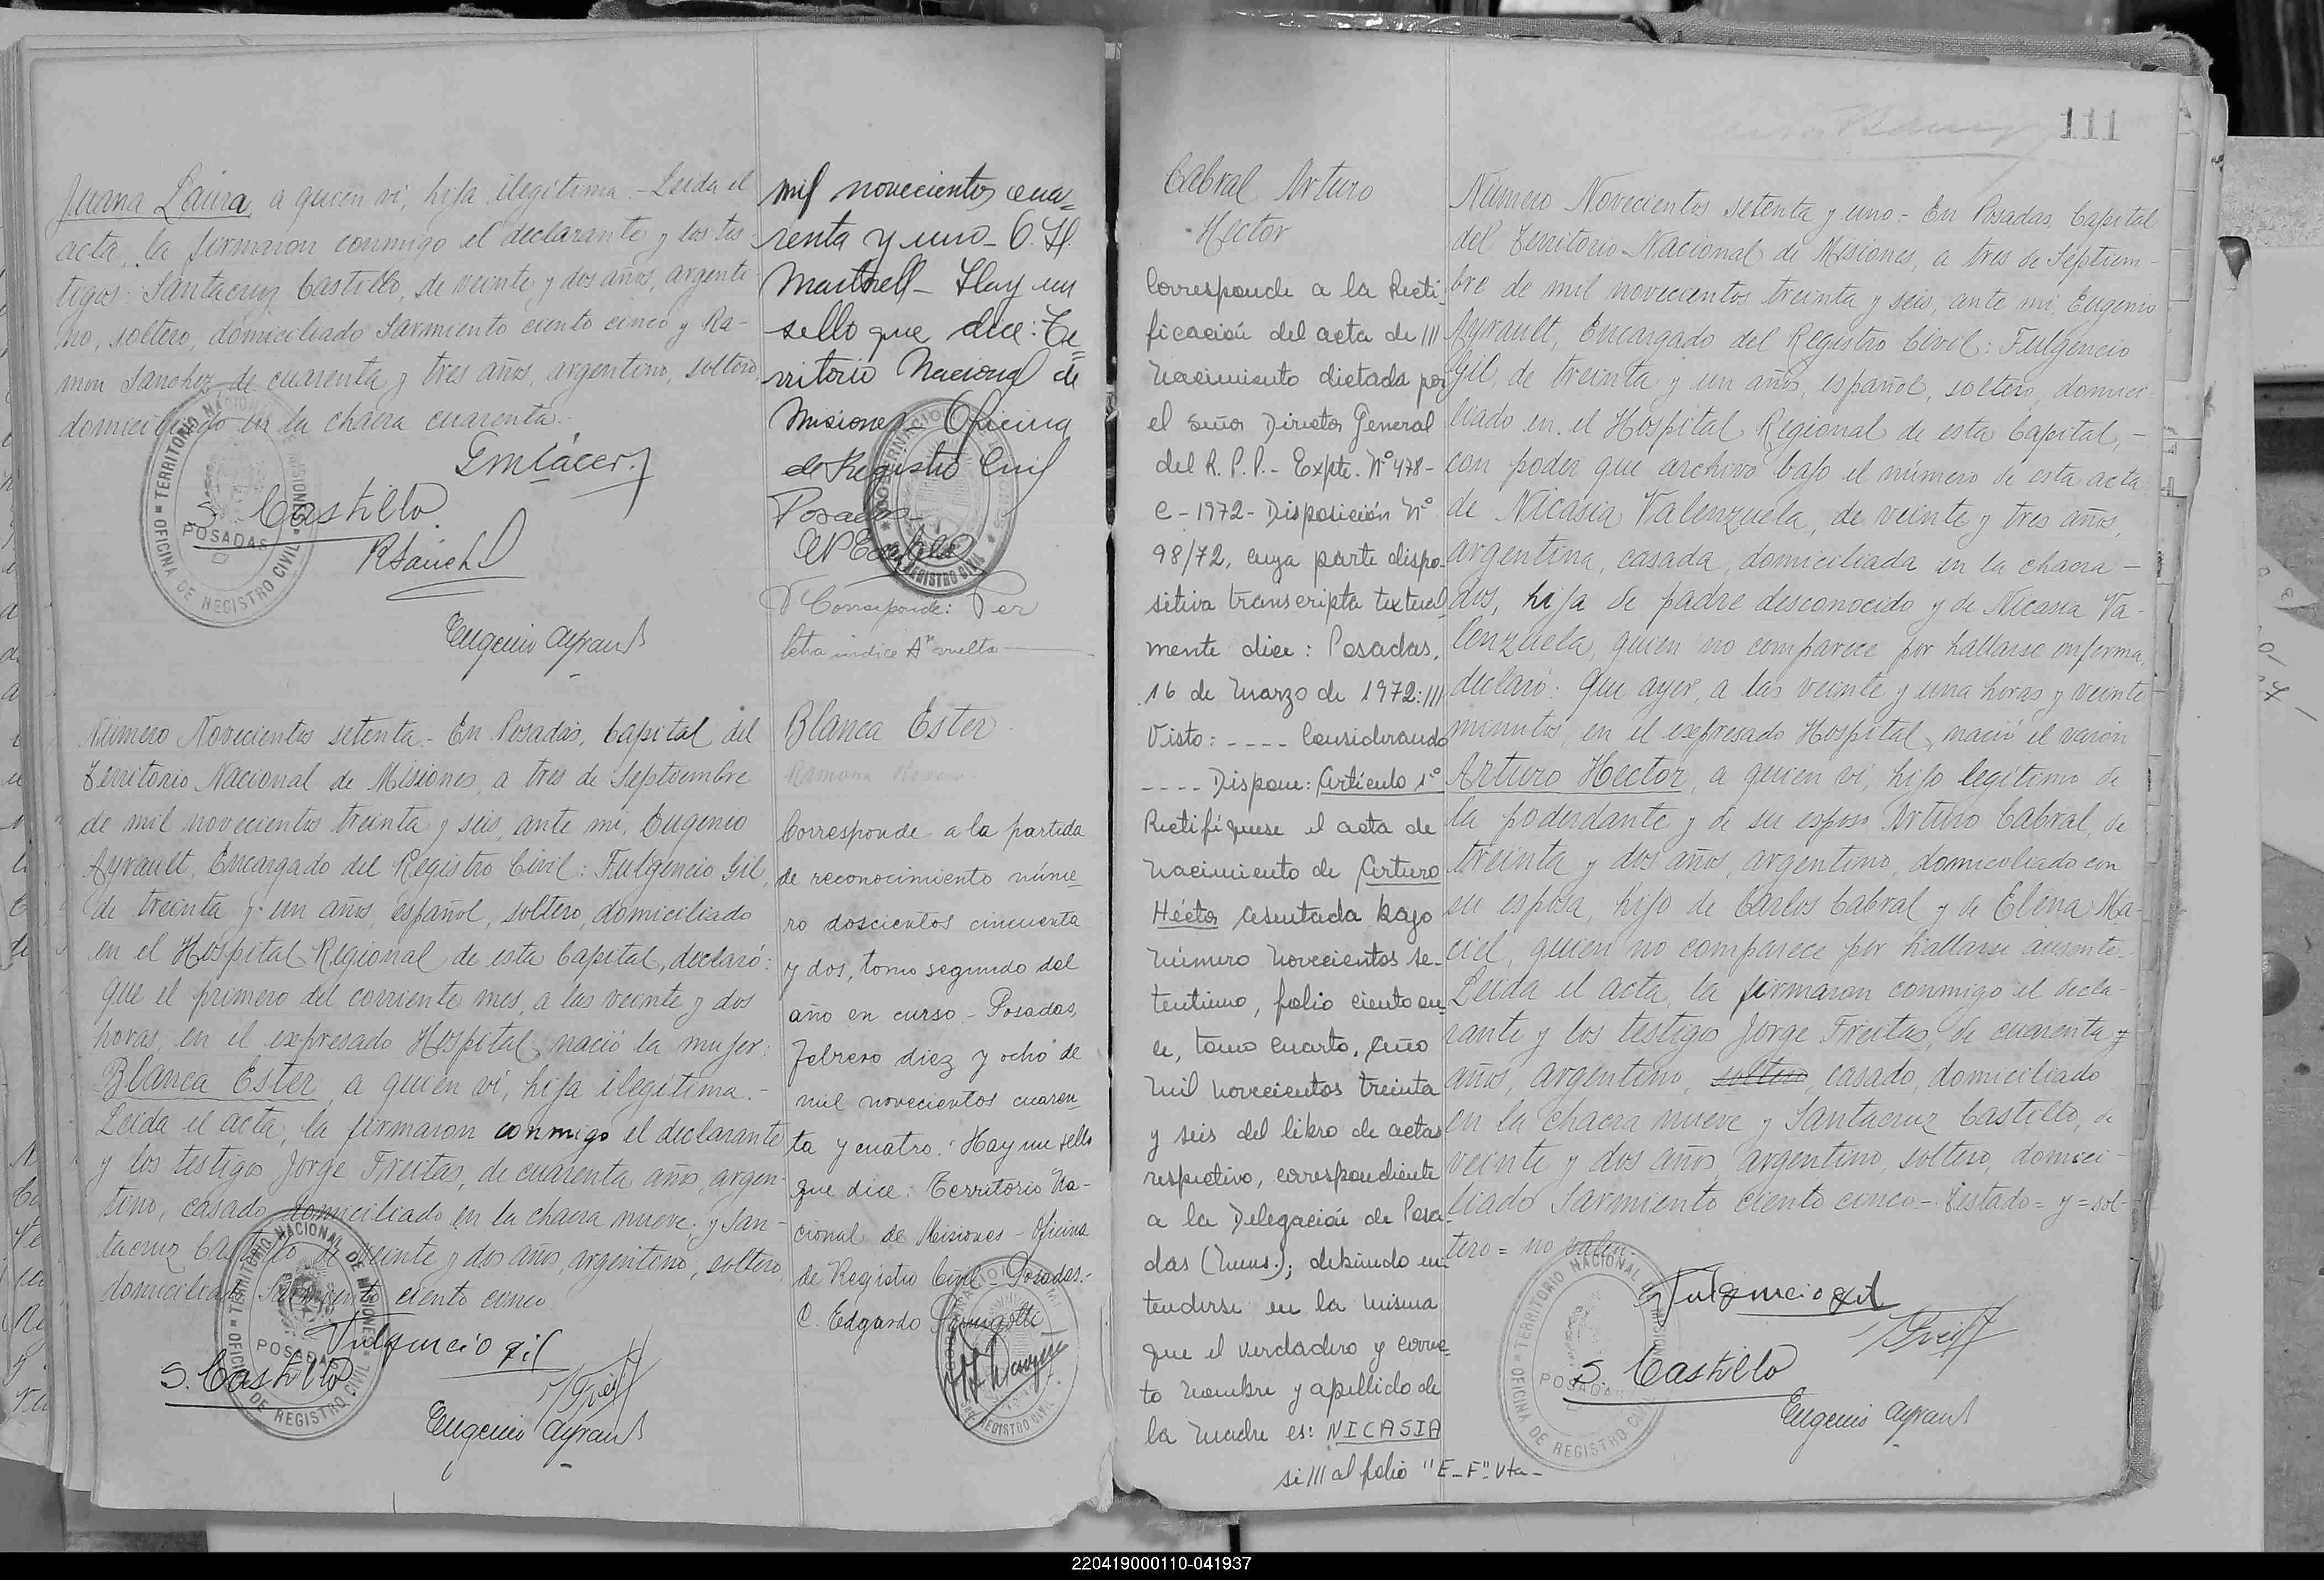 Juana Laura, a quien vi, hija ilegítima.- Leída el
acta, la firmaron conmigo el declarante y los tes-
tigos: Santacruz Castillo, de veinte y dos años, argenti-
no, soltero, domiciliado Sarmiento ciento cinco y Ra-
mon Sanchez, de cuarenta y tres años, argentino, soltero,
domiciliado en la chacra cuarenta.-
S. Castillo
Eugenio Ayrault
OFICINA DE REGISTRO CIVIL
TERRITORIO NACIONAL DE MISIONES
POSADAS
Número Novecientos setenta.- En Posadas, Capital del
Territorio Nacional de Misiones, a tres de Septiembre
de mil novecientos treinta y seis, ante mí, Eugenio
Ayrault, Encargado del Registro Civil: Fulgencio Gil,
de treinta y un años, español, soltero, domiciliado
en el Hospital Regional de esta Capital, declaró:
Que el primero del corriente mes, a las veinte y dos
horas, en el expresado Hospital, nació la mujer:
Blanca Ester, a quien vi, hija ilegítima.-
Leída el acta, la firmaron conmigo el declarante
y los testigos Jorge Freitas, de cuarenta años, argen-
tino, casado, domiciliado en la chacra nueve, y San-
tacruz Castillo, de veinte y dos años, argentino, soltero,
domiciliado Sarmiento ciento cinco.
Fulgencio gil
S. Castillo
J Freit
Eugenio Ayrault
OFICINA DE REGISTRO CIVIL
TERRITORIO NACIONAL DE MISIONES
POSADAS
mil novecientos cua=
renta y uno-
Hay un
sello que dice: Te=
rritorio Nacional de
Misiones- Oficina
de Registro Civil
Posadas-
Corresponde: Ver
letra indice A vuelta
Blanca Ester
Ramona
Corresponde a la partida
de reconocimiento núme-
ro doscientos cincuenta
y dos, tomo segundo del
año en curso.- Posadas,
febrero diez y ocho de
mil novecientos cuaren-
ta y cuatro. Hay un sello
que dice: Territorio Na-
cional de Misiones - Oficina
de Registro Civil - Posadas.-
C. Edgardo
REGISTRO CIVIL
111
Cabral Arturo
Hector
Corresponde a la Recti-
ficación del acta de ///
nacimiento dictada por
el Señor Director General
del R. P. P.- Expte. Nº 478-
C-1972- Disposición Nº
98/72, cuya parte dispo-
sitiva transcripta textual
mente dice: Posadas,
16 de Marzo de 1972: ///
Visto: ---- Considerando
---- Dispone: Artículo 1º
Rectifíquese el acta de
nacimiento de Arturo
Héctor asentada bajo
número novecientos se-
tentiuno, folio ciento on-
ce, tomo cuarto, año
mil novecientos treinta
y seis del libro de actas
respectivo, correspondiente
a la Delegación de Posa-
das (Mnes.); debiendo en-
tenderse en la misma
que el verdadero y correc-
to nombre y apellido de
la madre es: NICASIA
si /// al folio "E-F" Vta-
Número Novecientos setenta y uno.- En Posadas, Capital
del Territorio Nacional de Misiones, a tres de Septiem-
bre de mil novecientos treinta y seis, ante mi, Eugenio
Ayrault, Encargado del Registro Civil: Fulgencio
Gil, de treinta y un años, español, soltero, domici-
liado en el Hospital Regional de esta Capital,-
con poder que archivo bajo el número de esta acta
de Nicasia Valenzuela, de veinte y tres años,
argentina, casada, domiciliada en la chacra -
dos, hija de padre desconocido y de Nicasia Va-
lenzuela, quien no comparece por hallarse enferma,
declaró: Que ayer, a las veinte y una horas y veinte
minutos, en el expresado Hospital, nació el varón
Arturo Hector, a quien vi, hijo legítimo de
la poderdante y de su esposo Arturo Cabral, de
treinta y dos años, argentino, domiciliado con
su esposa, hijo de Carlos Cabral y de Elena Ma-
ciel, quien no comparece por hallarse ausente.-
Leída el acta, la firmaron conmigo el decla-
rante y los testigos Jorge Freitas, de cuarenta y
años, argentino, soltero, casado, domiciliado
en la chacra nueve y Santacruz Castillo, de
veinte y dos años, argentino, soltero, domici-
liado Sarmiento ciento cinco.- Testado= y = sol-
tero = no valen.-
Fulgencio gil
J Freit
S. Castillo
Eugenio Ayrault
OFICINA DE REGISTRO CIVIL
TERRITORIO NACIONAL DE MISIONES
POSADAS
220419000110-041937